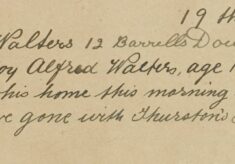 19 th
Walters 12 Barrells Dow
oy Alfred Walters, age 1
his home this morning
ve gone with Thurston's